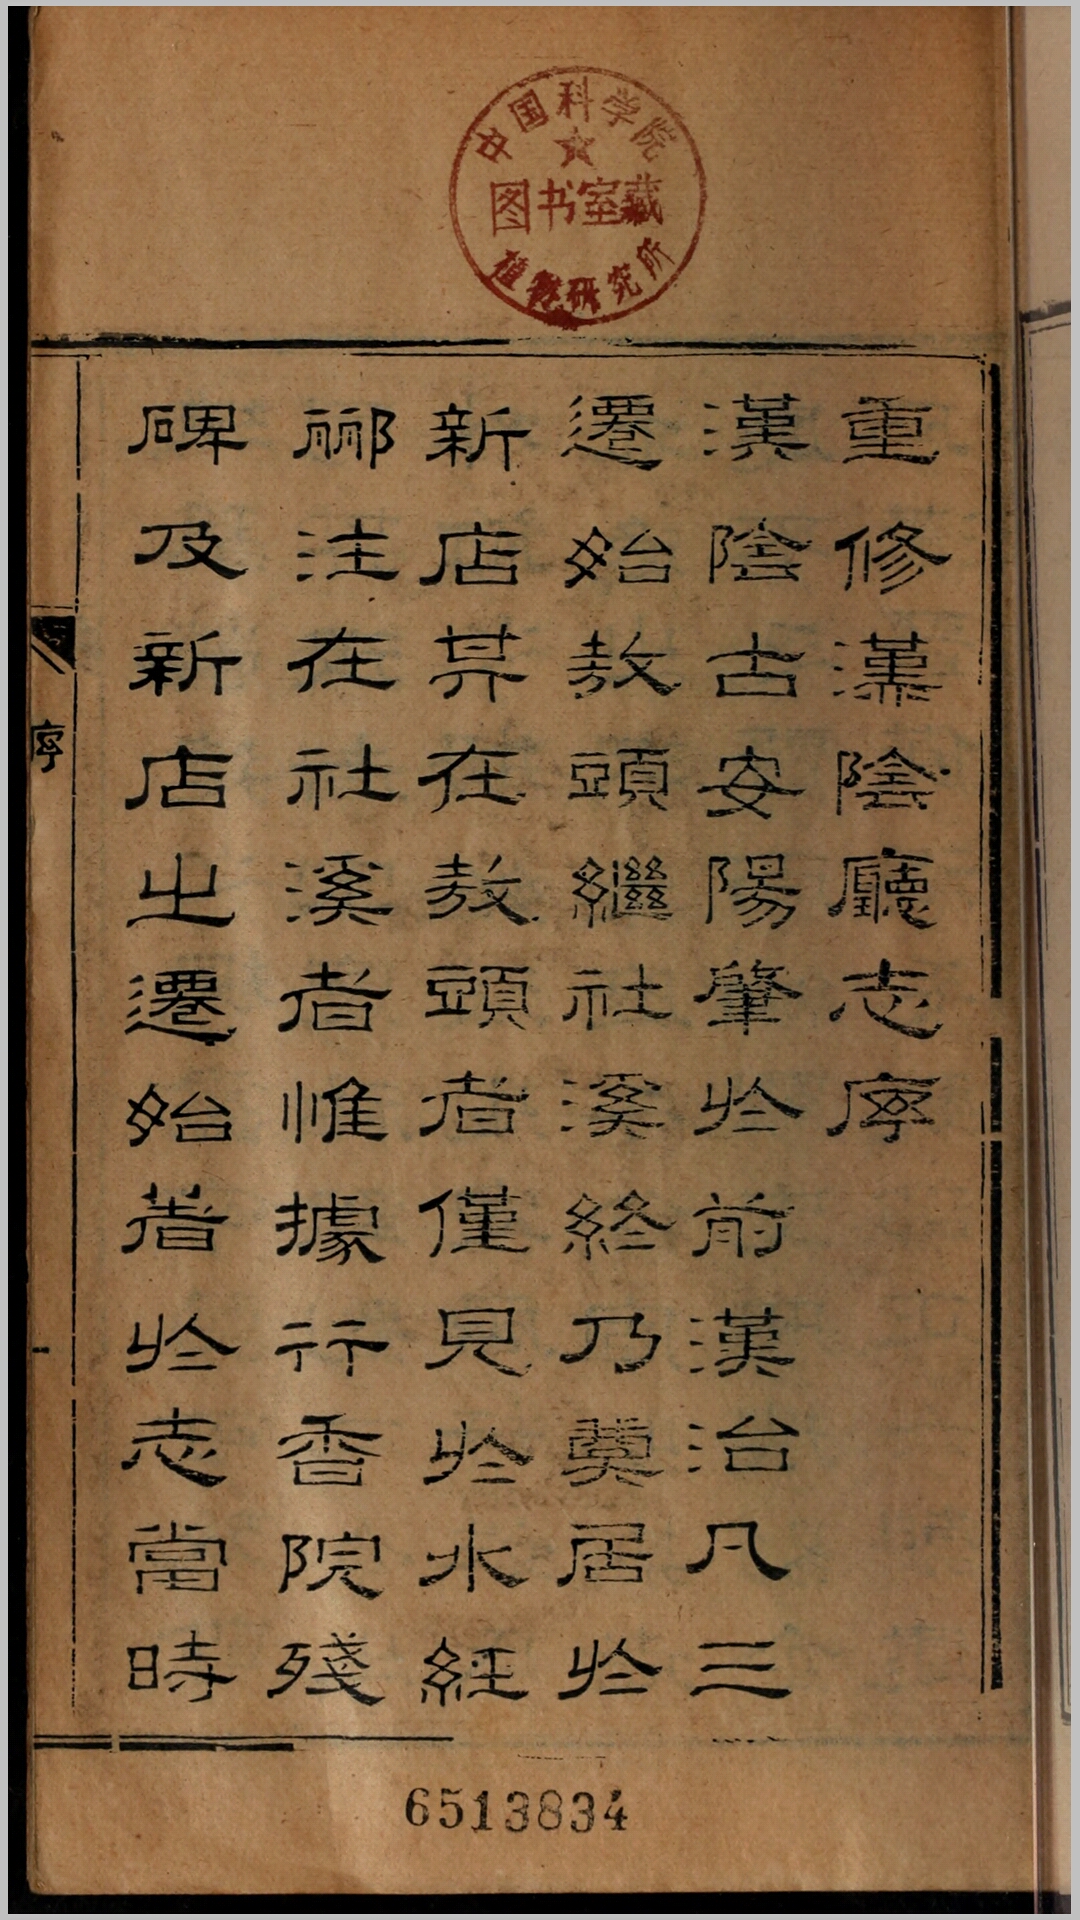 中国科学院
图书室藏
植物研究所
重修漢陰廳志序
漢陰古安陽肇於前漢治凡三
遷始敖頭繼社溪終乃奠居於
新店其在敖頭者僅見於水經
酈注在社溪者惟據行香院殘
碑及新店之遷始著於志當時
序
一
6513834